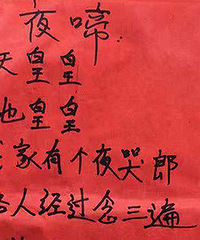 夜啼
天皇皇
皇皇
家有个夜哭郎
人经过念三遍